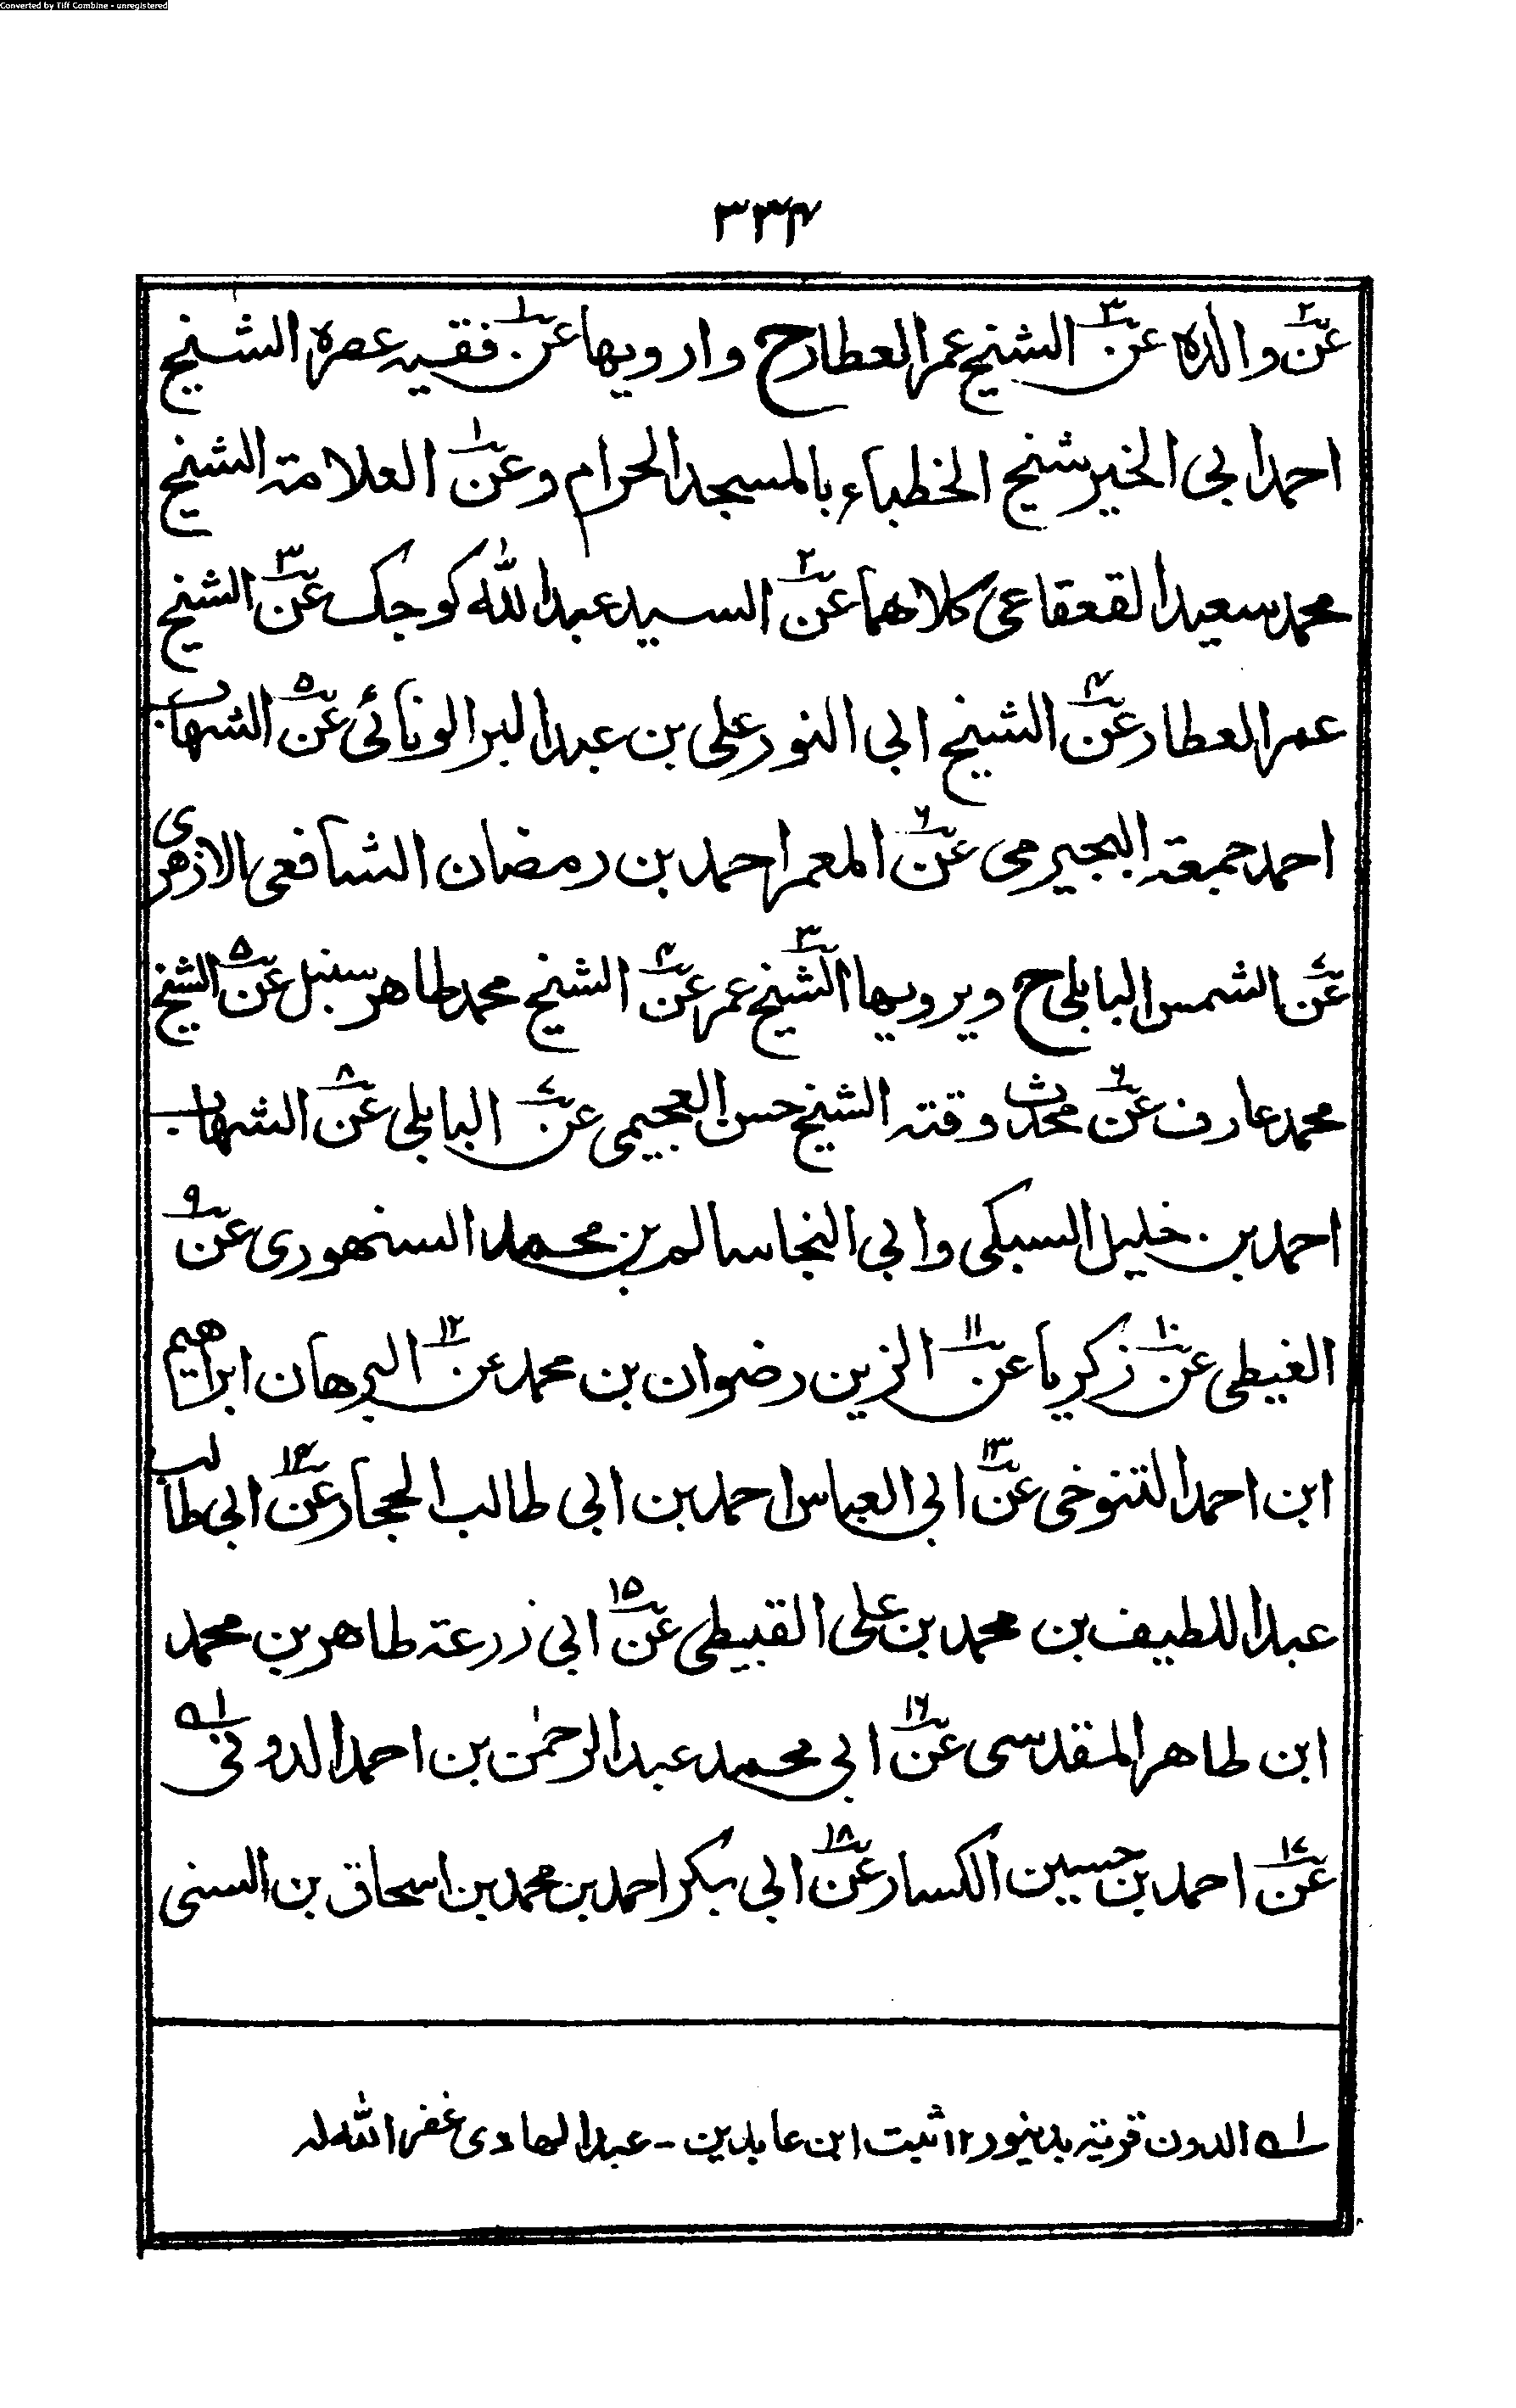 Converted by Tiff Combine - unregistered
۳۳۴
عن۲ والده عن۳ الشيخ عمر العطار ح وارويها عن۱ فقيه عصره الشيخ
احمد ابى الخير شيخ الخطباء بالمسجد الحرام وعن۱ العلامة الشيخ
محمد سعيد القعقاعى كلاهما عن۲ السيد عبد الله كوجك عن۳ الشيخ
عمر العطار عن۴ الشيخ ابى النور على بن عبد البر الونائى عن۵ الشهاب
احمد جمعة البجيرمى عن۶ المعمر احمد بن رمضان الشافعى الازهرى
عن۷ الشمس البابلى ح ويرويها الشيخ۳ عمر عن۴ الشيخ محمد طاهر سنبل عن۵ الشيخ
محمد عارف عن۶ محدث وقته الشيخ حسن العجيمى عن۷ البابلى عن۸ الشهاب
احمد بن خليل السبكى وابى النجا سالم بن محمد السنهورى عن۹
الغيطى عن۱۰ زكريا عن۱۱ الزين رضوان بن محمد عن۱۲ البرهان ابراهيم
ابن احمد التنوخى عن۱۳ ابى العباس احمد بن ابى طالب الحجار عن۱۴ ابى طالب
عبد اللطيف بن محمد بن على القبيطى عن۱۵ ابى زرعة طاهر بن محمد
ابن طاهر المقدسى عن۱۶ ابى محمد عبد الرحمٰن بن احمد الدونى ۱ه
عن۱۷ احمد بن حسين الكسار عن۱۸ ابى بكر احمد بن محمد بن اسحاق بن السنى
۱ه الدون قرية بدينور ۱۲ ثبت ابن عابدين - عبد الهادى غفر الله له